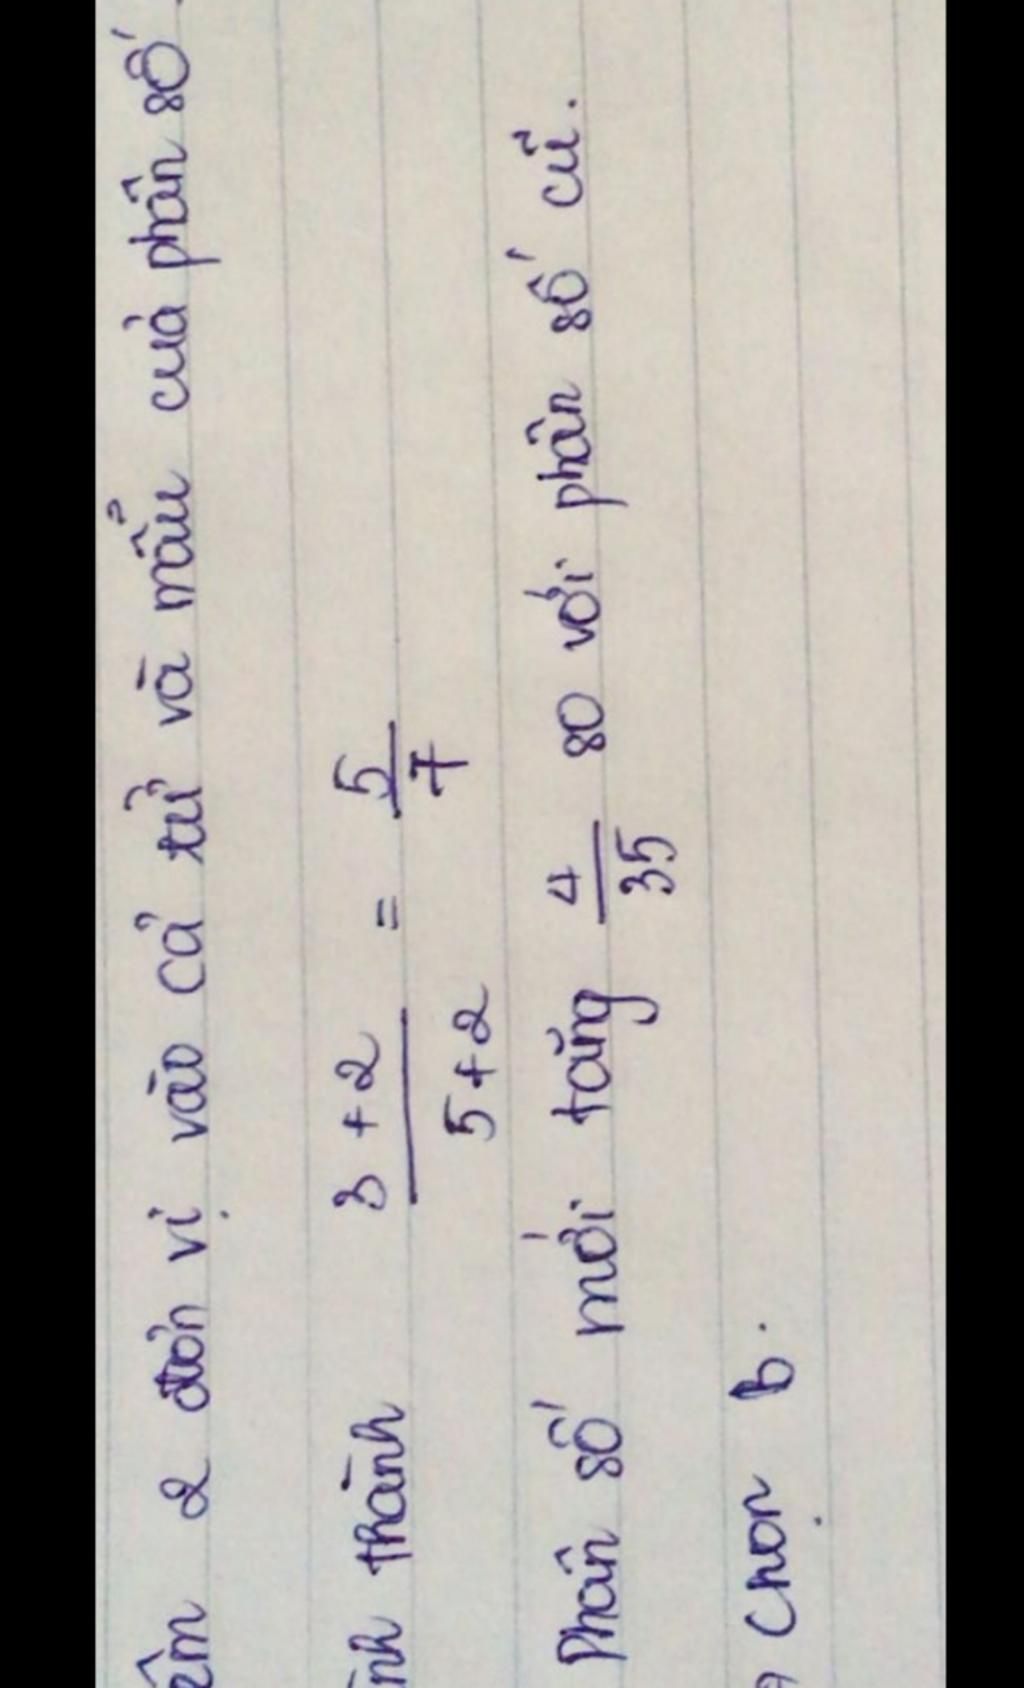 2 đơn vị vào cả tử và mẫu của phân số
thành 3 + 2 / 5 + 2 = 5 / 7
Phân số mới tăng 4 / 35 so với phân số cũ.
Chọn b.